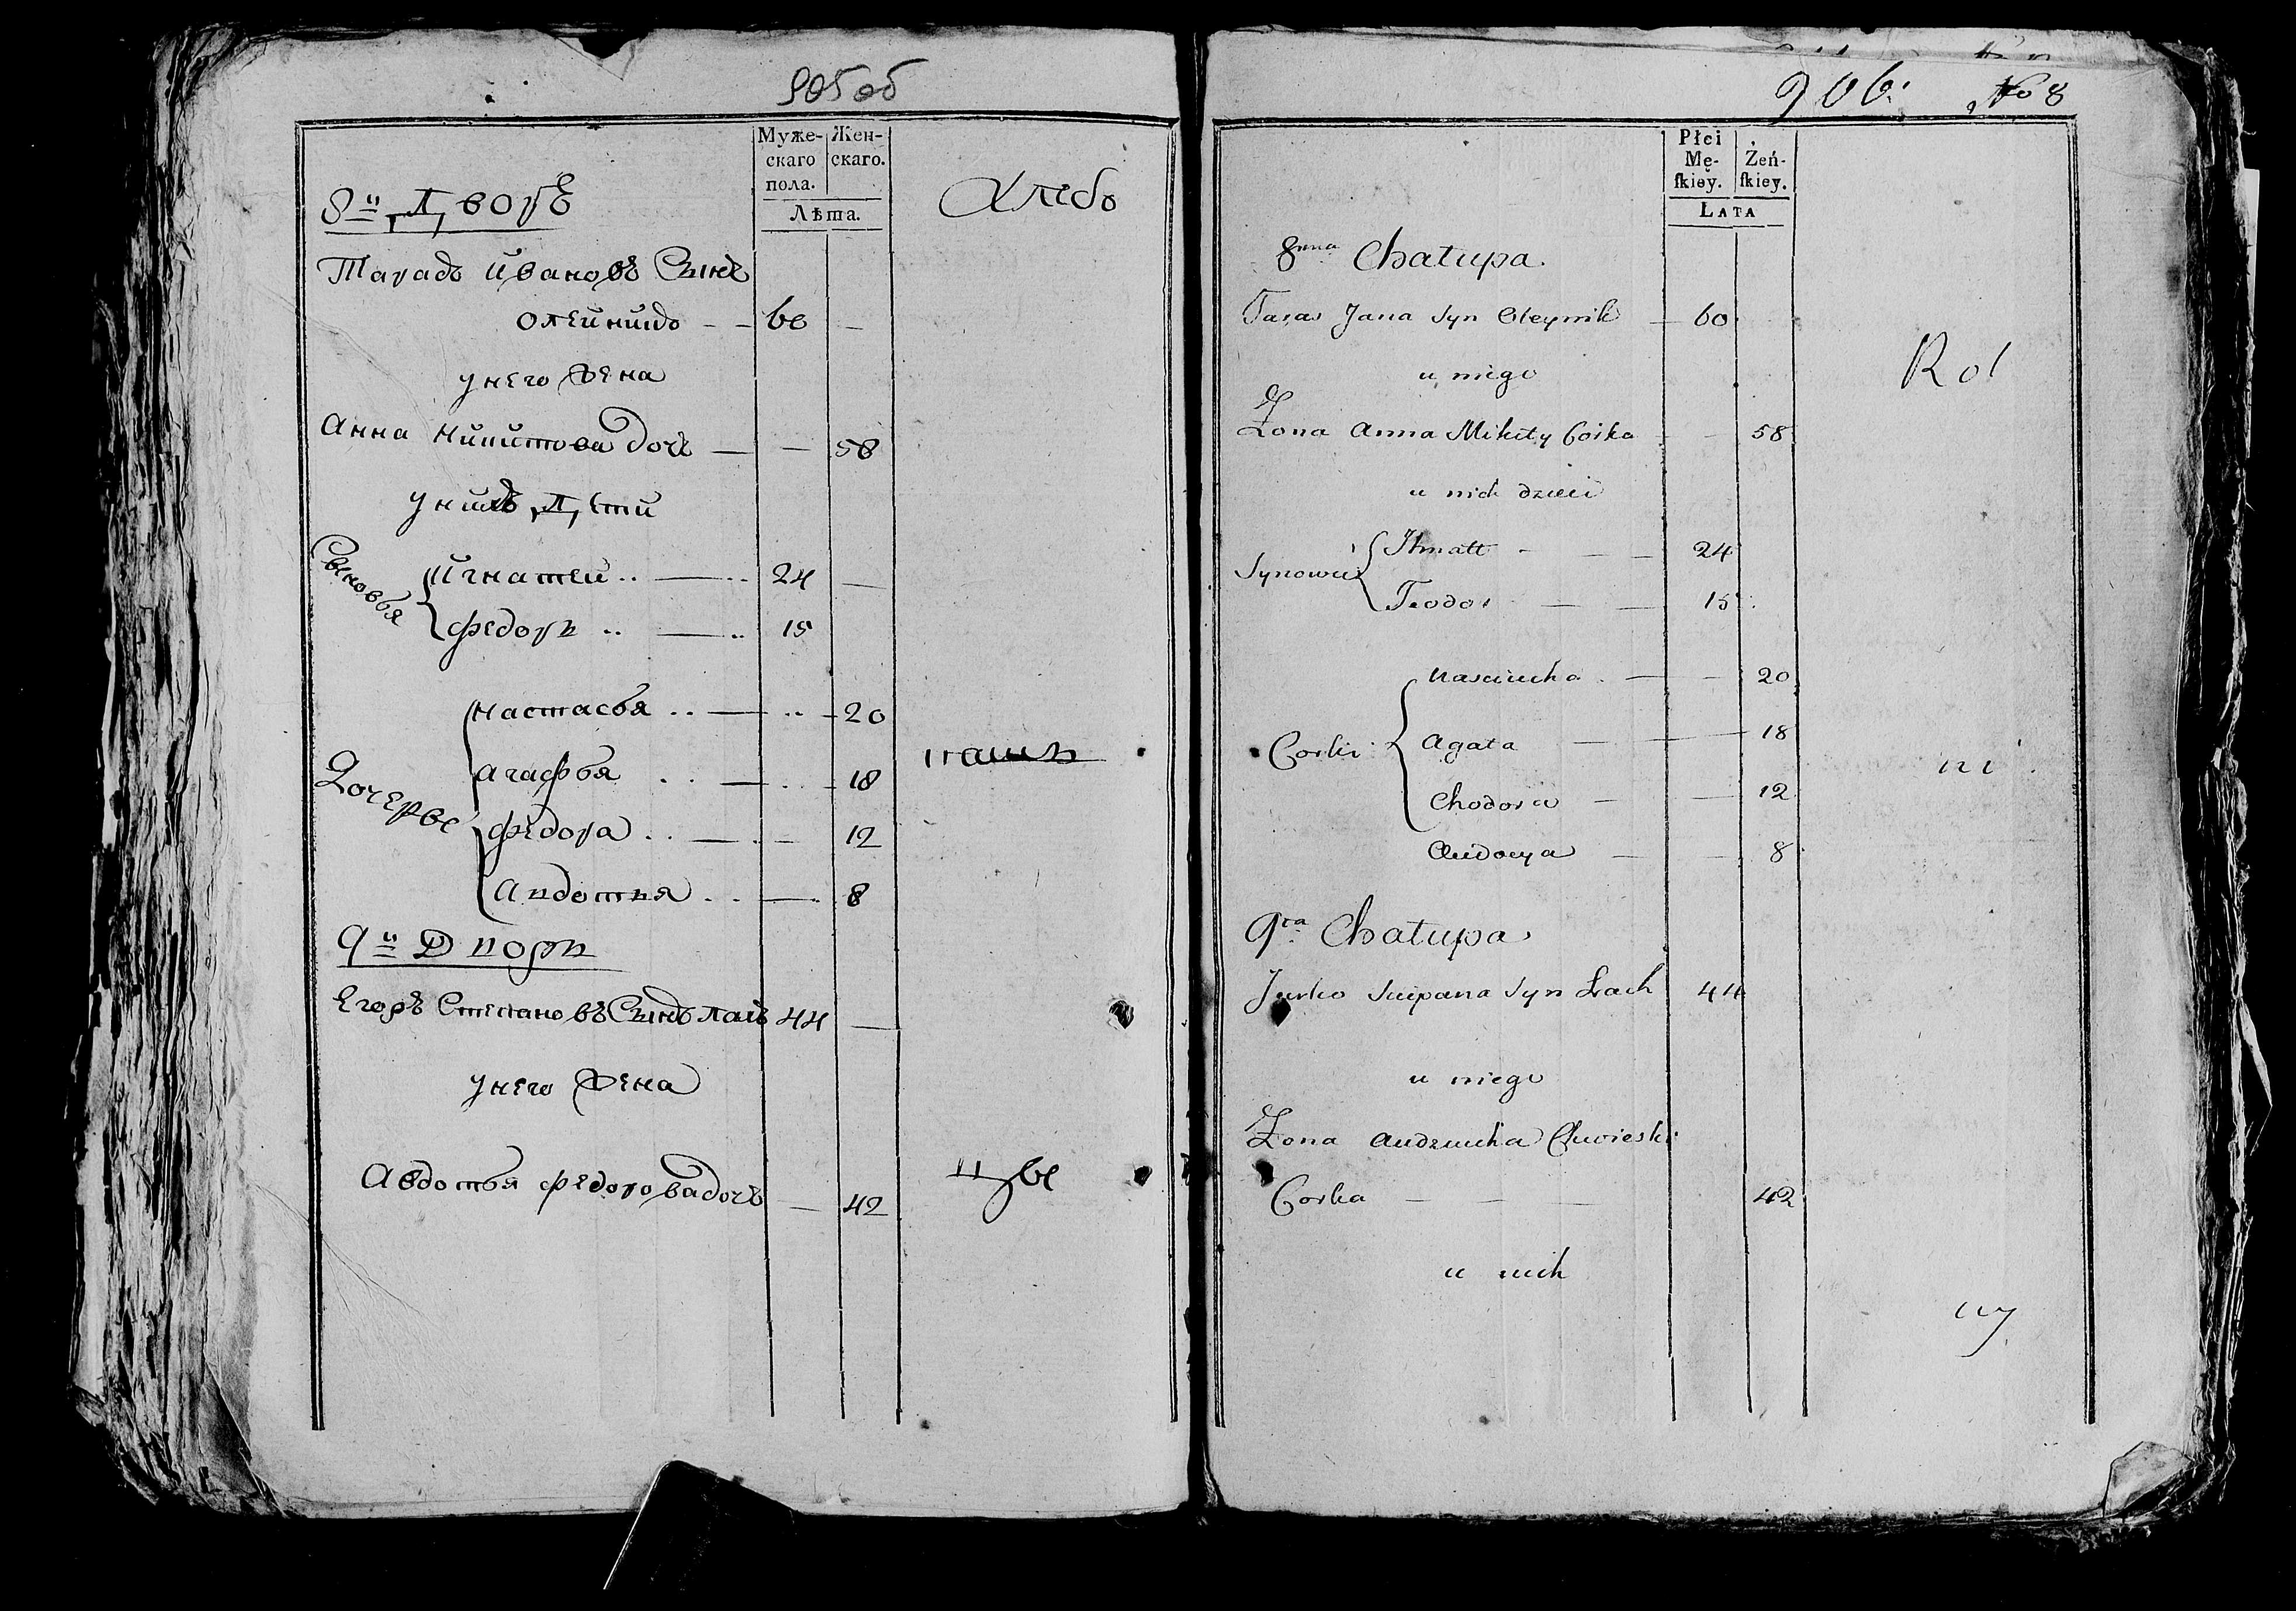 905 об
Муже-
скаго
пола.
Жен-
скаго.
Лѣта.
8й Дворъ
Хлебо
Тарасъ Ивановъ Сынъ
Олейникъ - - 60 -
унего Жена
Анна Никитова дочь - - 58
унихъ Дѣти
Сыновья
Игнатей .. - .. 24 -
Федоръ .. - .. 15
Дочерве
Настасья .. - .. - 20
Агафья .. - .. - 18
паш
Федора .. - . - 12
Авдотья .. - . 8
9й Дворъ
Егоръ Степановъ Сынъ Лахъ 44 -
унего Жена
Авдотья Федорова дочь - 42
цве
906. No 8
Płci
Mę-
ſkiey.
Żeń-
ſkiey.
LATA
8ma Chałupa
Taras Jana Syn Oleynik - 60
u niego
Rol
Żona Anna Mikity Corka - - 58
u nich dzieci
Synowie
Ihnatt - - - 24
Teodor - - 15
Corki
Nasciucha . - - 20
Agata - - 18
ni
Chodora - - 12
Audocya - - 8
9ta Chałupa
Jurko Sciepana Syn Lach 44
u niego
Żona Audziucha Chwieski
Corka - - - 42
u nich
cy